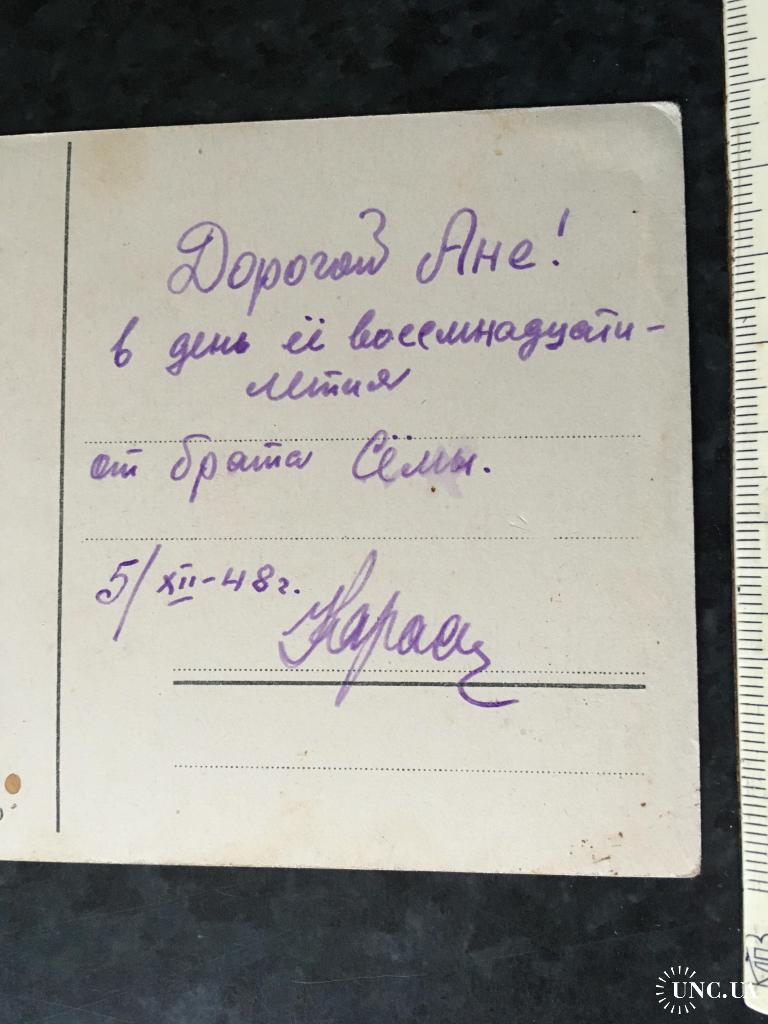 Дорогой Ане!
в день её восемнадцати-
летия
от брата Сёмы.
5/XII-48г.
UNC.UA